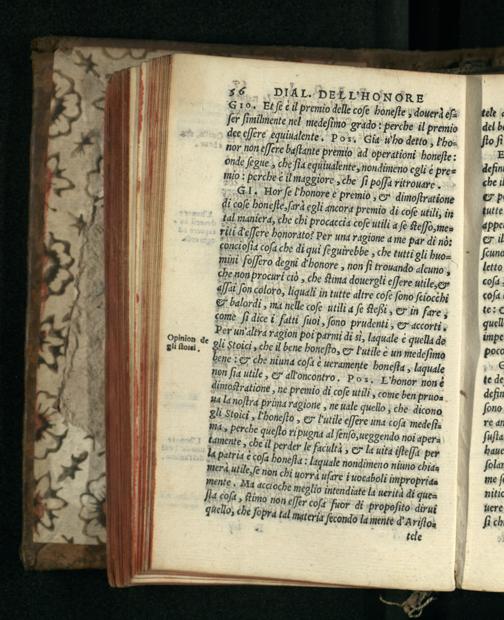 56 DIAL. DELL'HONORE
GIO. Et se è il premio delle cose honeste, douerà es=
ser similmente nel medesimo grado: perche il premio
dee essere equiualente. POS. Gia u'ho detto, l'ho=
nor non essere bastante premio ad operationi honeste:
onde segue, che sia equiualente, nondimeno egli è pre=
mio: perche è il maggiore, che si possa ritrouare.
GI. Hor se l'honore è premio, & dimostratione
di cose honeste, sarà egli ancora premio di cose utili, in
tal maniera, che chi procaccia cose utili a se stesso, me=
riti d'essere honorato? Per una ragione a me par di nò:
conciosia cosa che di qui seguirebbe, che tutti gli huo=
mini fossero degni d'honore, non si trouando alcuno,
che non procuri ciò, che stima douergli essere utile, &
assai son coloro, liquali in tutte altre cose sono sciocchi
& balordi, ma nelle cose utili a se stesi, & in fare,
come si dice i fatti suoi, sono prudenti, & accorti.
Per un'altra ragion poi parmi di sì, laquale è quella de
gli Stoici, che il bene honesto, & l'utile è un medesimo
bene: & che niuna cosa è ueramente honesta, laquale
non sia utile, & all'oncontro. POS. L'honor non è
dimostratione, ne premio di cose utili, come ben pruo=
ua la nostra prima ragione, ne uale quello, che dicono
gli Stoici, l'honesto, & l'utile essere una cosa medesi=
ma, perche questo ripugna al senso, ueggendo noi aper=
tamente, che il perder le facultà, & la uita istessa per
la patria è cosa honesta: laquale nondimeno niuno chia=
merà utile, se non chi uorrà usare i uocaboli impropria=
mente. Ma accioche meglio intendiate la uerità di que=
sta cosa, stimo non esser cosa fuor di proposito dirui
quello, che sopra tal materia secondo la mente d'Aristo=
tele
Opinion de
gli stoici.